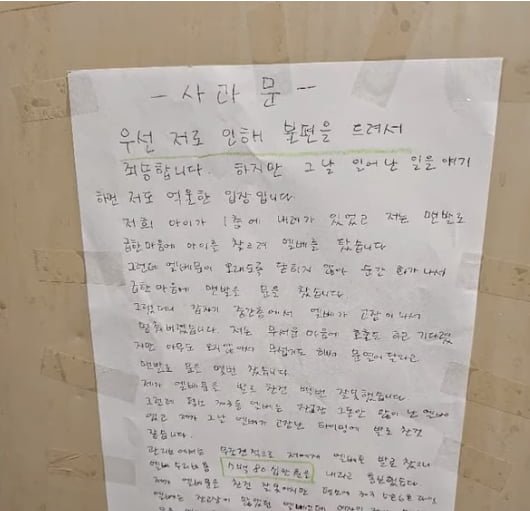 - 사과문 -
우선 저로 인해 불편을 드려서
죄송합니다. 하지만 그날 일어난 일을 얘기
하면 저도 억울한 입장입니다
저희 아이가 1층에 내려가 있었고 저는 맨발로
급한마음에 아이를 찾으려 엘베를 탔습니다
그런데 엘베문이 오래도록 닫히지 않아 순간 화가나서
급한 마음에 맨발로 문을 찼습니다.
그랬더니 갑자기 중간층에서 엘베가 고장이 나서
멈춰버렸습니다. 저는 무서운 마음에 호출도 하고 기다렸
지만 아무도 오지 않아서 무섭기도 해서 문열어달라고
맨발로 문을 몇번 찼습니다.
제가 엘베문을 발로 찬건 백번 잘못했습니다.
그런데 엘베는 잔고장 그동안 많이 난 엘베
였고 제가 그날 엘베가 고장난 타이밍에 발로 찬것
같습니다.
관리실에서는 무조건적으로 저에게 엘베문을 발로 찼으니
엘베 수리비를 내라고 통보했습니다
제가 엘베문을 찬건 잘못이지만
엘베는 잔고장이 많았던